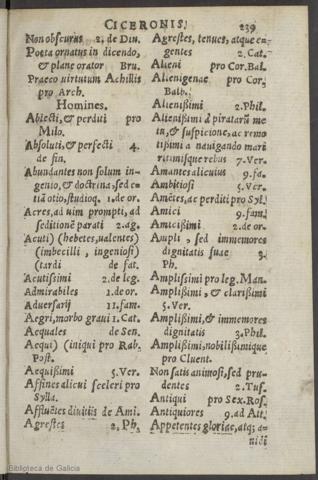 CICERONIS. 239
Non obscurus 2. de Diu.
Poeta ornatus in dicendo,
& planè orator Bru.
Praeco uirtutum Achillis
pro Arch.
Homines.
Abiecti, & perditi pro
Milo.
Absoluti, & perfecti 4.
de fin.
Abundantes non solum in-
genio, & doctrina, sed e-
tiā otio, studioq. 1. de or.
Acres, ad uim prompti, ad
seditionē parati 2. ag.
Acuti) (hebetes, ualentes)
(imbecilli, ingeniosi)
(tardi de fat.
Acutissimi 2. de leg.
Admirabiles 1. de or.
Aduersarij 11. fam.
Aegri, morbo graui 1. Cat.
Aequales de Sen.
Aequi) (iniqui pro Rab.
Post.
Aequißimi 5. Ver.
Affines alicui sceleri pro
Sylla.
Affluētes diuitiis de Ami.
Agrestes 2. Ph.
Agrestes, tenues, atque en-
gentes 2. Cat.
Alieni pro Cor. Bal.
Alienigenae pro Cor.
Balb.
Alienißimi 2. Phil.
Alienißimi à piratarū me
tu, & suspicione, ac remo
tißimi a nauigando mari
ritimisque rebus 7. Ver.
Amantes alicuius 9. fa.
Ambitiosi 5. Ver.
Amētes, ac perditi pro Syl.
Amici 9. fam.
Amicißimi 2. de or.
Ampli, sed immemores
dignitatis suae 3.
Ph.
Amplißimi pro leg. Man.
Amplißimi, & clarißimi
5. Ver.
Amplißimi, & immemores
dignitatis 3. Phil.
Amplißimi, nobilißimique
pro Cluent.
Non satis animosi, sed pru-
dentes 2. Tus.
Antiqui pro Sex. Ros.
Antiquiores 9. ad Att.
Appetentes gloriae, atq; a-
uidi
Biblioteca de Galicia